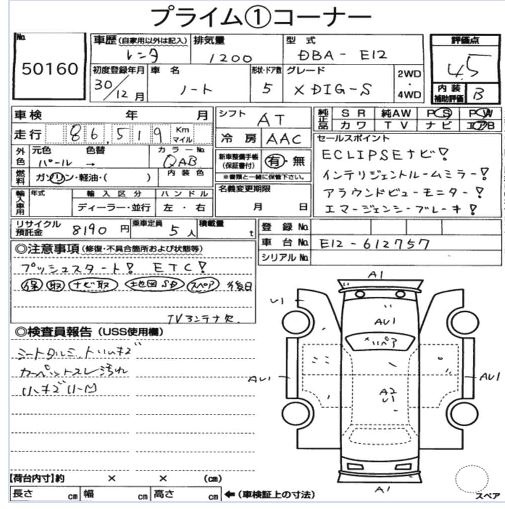 プライム①コーナー
No. 50160
車歴 (自家用以外は記入) レンタ
排気量 1200
型式 DBA-E12
評価点 4.5
初度登録年月 30/12月
車名 ノート
形状・ドア数 5
グレード X DIG-S
2WD
4WD
内装補助評価 B
車検 年 月
シフト AT
純正品 SR 純AW PS PW
カワ TV ナビ エアB
走行 86,519 Km マイル
冷房 AAC
セールスポイント
ECLIPSEナビ!
インテリジェントルームミラー!
アラウンドビューモニター!
エマージェンシーブレーキ!
外色 元色 パール → 色替
カラーNo. QAB
新車整備手帳(保証書付) 有・無
※書類と一緒に保管下さい。
燃料 ガソリン・軽油・( )
内装色
名義変更期限 月 日
輸入車用 年式 輸入区分 ディーラー・並行
ハンドル 左・右
リサイクル預託金 8190 円
乗車定員 5 人
積載量 t
登録No.
車台No. E12-612757
シリアルNo.
◎注意事項 (修復・不具合箇所および状態等)
プッシュスタート! ETC!
保 取 ナビ取 地図SD スペア 後日
TVアンテナ欠
◎検査員報告 (USS使用欄)
カーペットスレ 汚れ
A1
U1
AU1
リペア
A2
U1
AU1
AU1
A1
スペア
【荷台内寸】約 × × (cm)
長さ cm 幅 cm 高さ cm ←(車検証上の寸法)